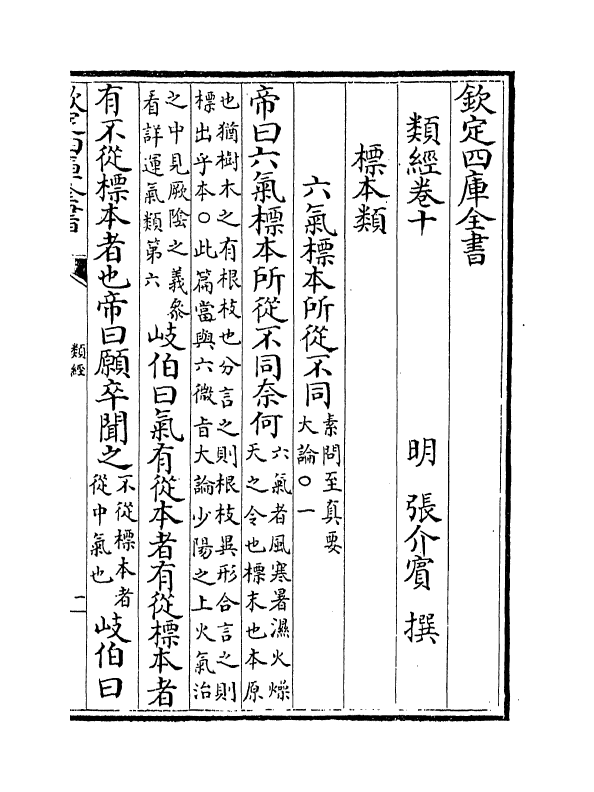 欽定四庫全書
類經卷十 明 張介賓 撰
標本類
六氣標本所從不同
素問至真要
大論○一
帝曰六氣標本所從不同奈何
六氣者風寒暑濕火燥
天之令也標末也本原
也猶樹木之有根枝也分言之則根枝異形合言之則
標出乎本○此篇當與六微㫖大論少陽之上火氣治
之中見厥陰之義叅
看詳運氣類第六
岐伯曰氣有從本者有從標本者
有不從標本者也帝曰願卒聞之
不從標本者
從中氣也
岐伯曰
欽定四庫全書
類經